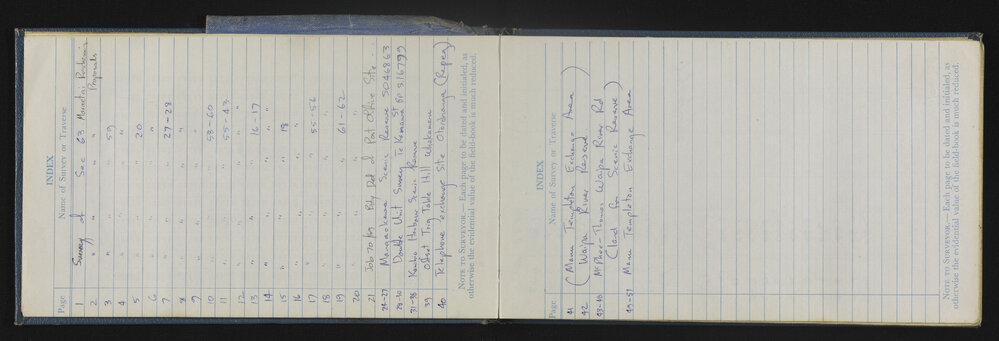 INDEX
Page Name of Survey or Traverse
1 Survey of Sec 63 Mounetai
2 " " " " Proposals
3 " " " 59
4 " " " "
5 " " " 20
6 " " " "
7 " " " 27-28
8 " " " "
9 " " " "
10 " " " 58-60
11 " " " 55-43
12 " " " "
13 " " " 16-17
14 " " " "
15 " " " 18
16 " " " "
17 " " " 55-56
18 " " " "
19 " " " 61-62
20 " " " "
21 Job 70/49 Bdy Def of Post Office Site
24-27 Scenic Reserve SO46863
28-30 Double Unit Survey Te Kumi St DP S.16799
31-38 Kawhia Harbour Scenic Reserve
39 Offset Trig Table Hill Whakamaru
40 Telephone exchange site Otorohanga (Repeg)
NOTE TO SURVEYOR.—Each page to be dated and initialed, as
otherwise the evidential value of the field-book is much reduced.
INDEX
Page Name of Survey or Traverse
41 (Manu Templeton Exchange Area)
42 (Waipa River Reserve)
43-48 McPhee-Thomas Waipa River Rd
(Land for Scenic Reserve)
49-51 Manu Templeton Exchange Area
NOTE TO SURVEYOR.—Each page to be dated and initialed, as
otherwise the evidential value of the field-book is much reduced.